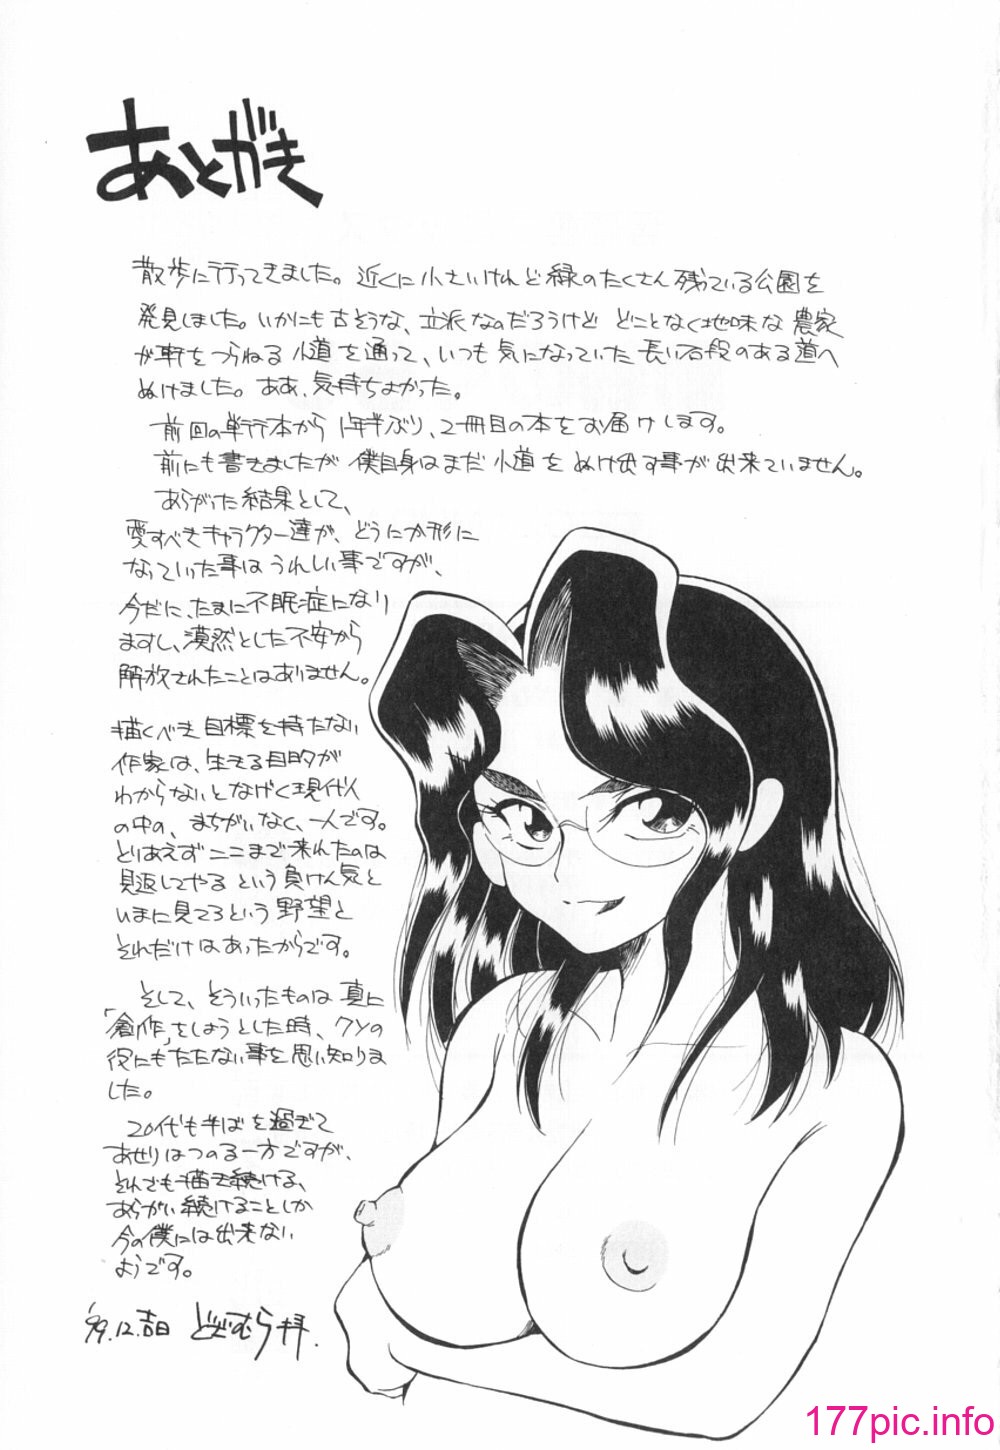 あとがき
散歩に行ってきました。近くに小さいけれど緑のたくさん残っている公園を
発見しました。いかにも古そうな、立派なのだろうけど どことなく地味な農家
が軒をつらねる小道を通って、いつも気になっていた長い石段のある道へ
ぬけました。ああ、気持ちよかった。
前回の単行本から1年半ぶり、2冊目の本をお届けします。
前にも書きましたが僕自身はまだ小道をぬけ出す事が出来ていません。
あらがった結果として、
愛すべきキャラクター達が、どうにか形に
なっていった事はうれしい事ですが、
今だに、たまに不眠症になり
ますし、漠然とした不安から
解放されたことはありません。
描くべき目標を持たない
作家は、生きる目的が
わからないとなげく現代人
の中の、まちがいなく、一人です。
とりあえずここまで来れたのは
見返してやるという負けん気と
いまに見てろという野望と
それだけはあったからです。
そして、そういったものは真に
「創作」をしようとした時、クソの
役にもたたない事を思い知りま
した。
20代も半ばを過ぎて
あせりはつのる一方ですが、
それでも描き続ける、
あらがい続けることしか
今の僕には出来ない
ようです。
'99.12.吉日 どざむら拝.
177pic.info